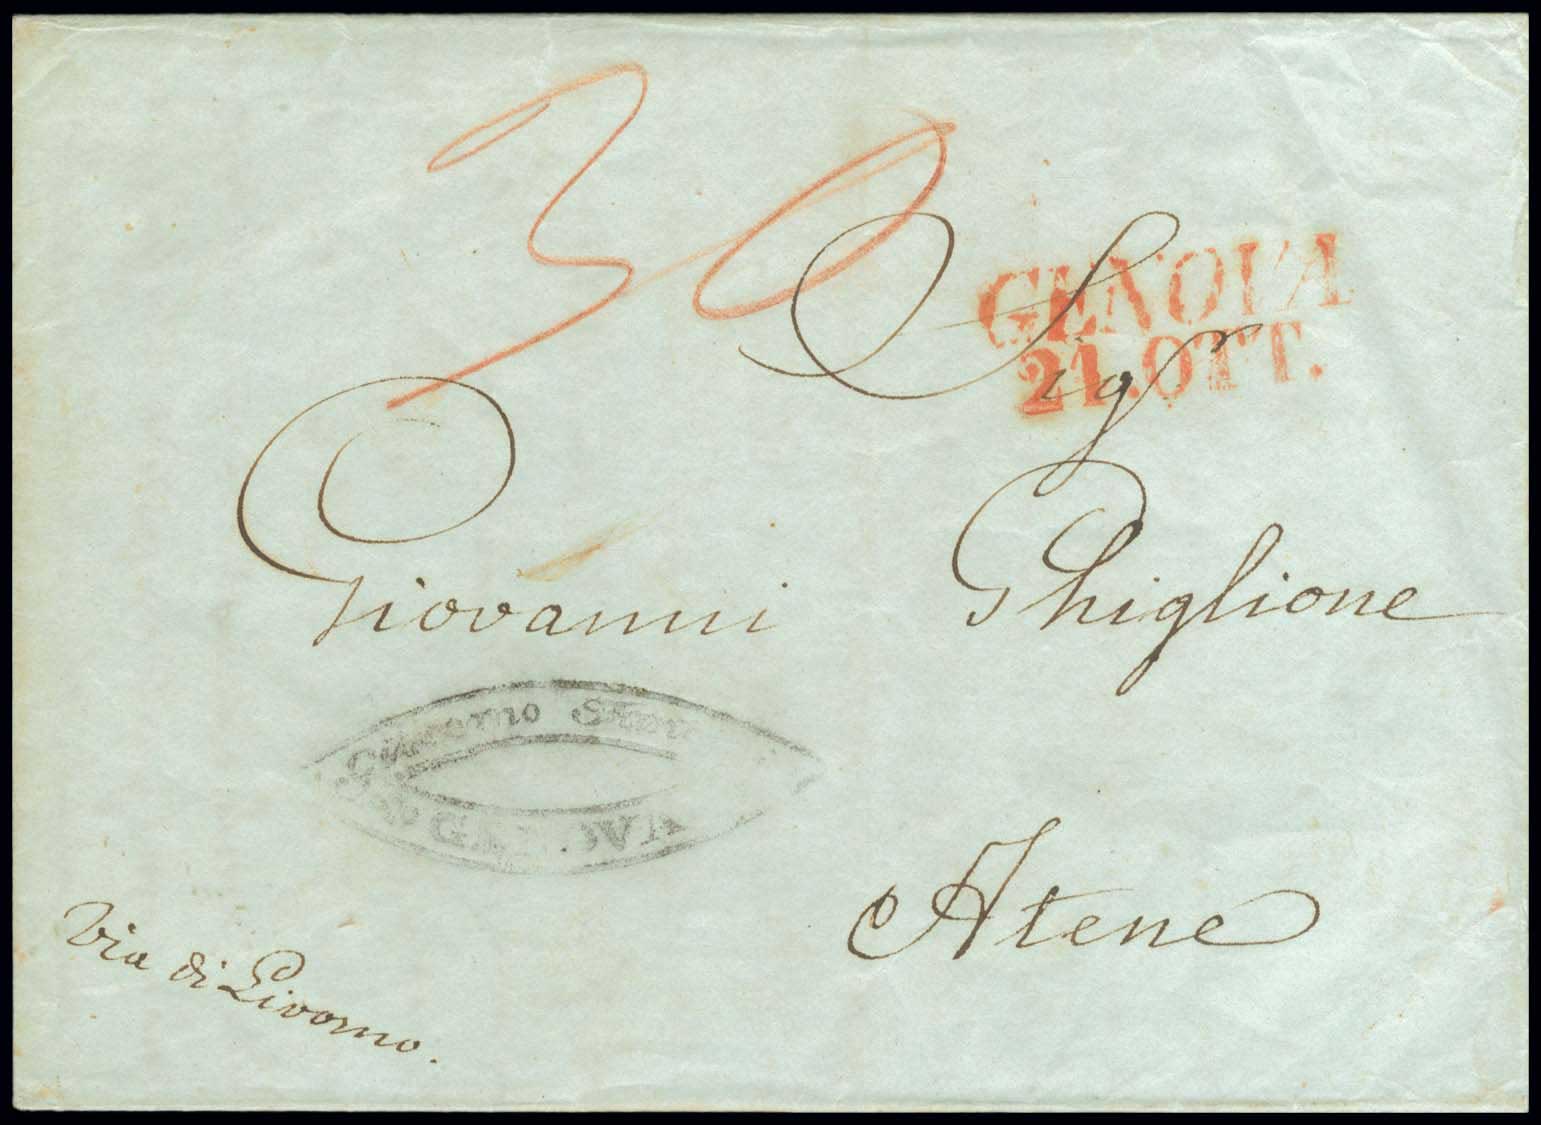 30
GENOVA
21.OTT.
Sigr
Giovanni Ghiglione
Giacomo
GENOVA
Atene
Via di Livorno.